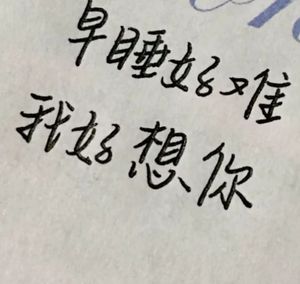 早睡好难
我好想你